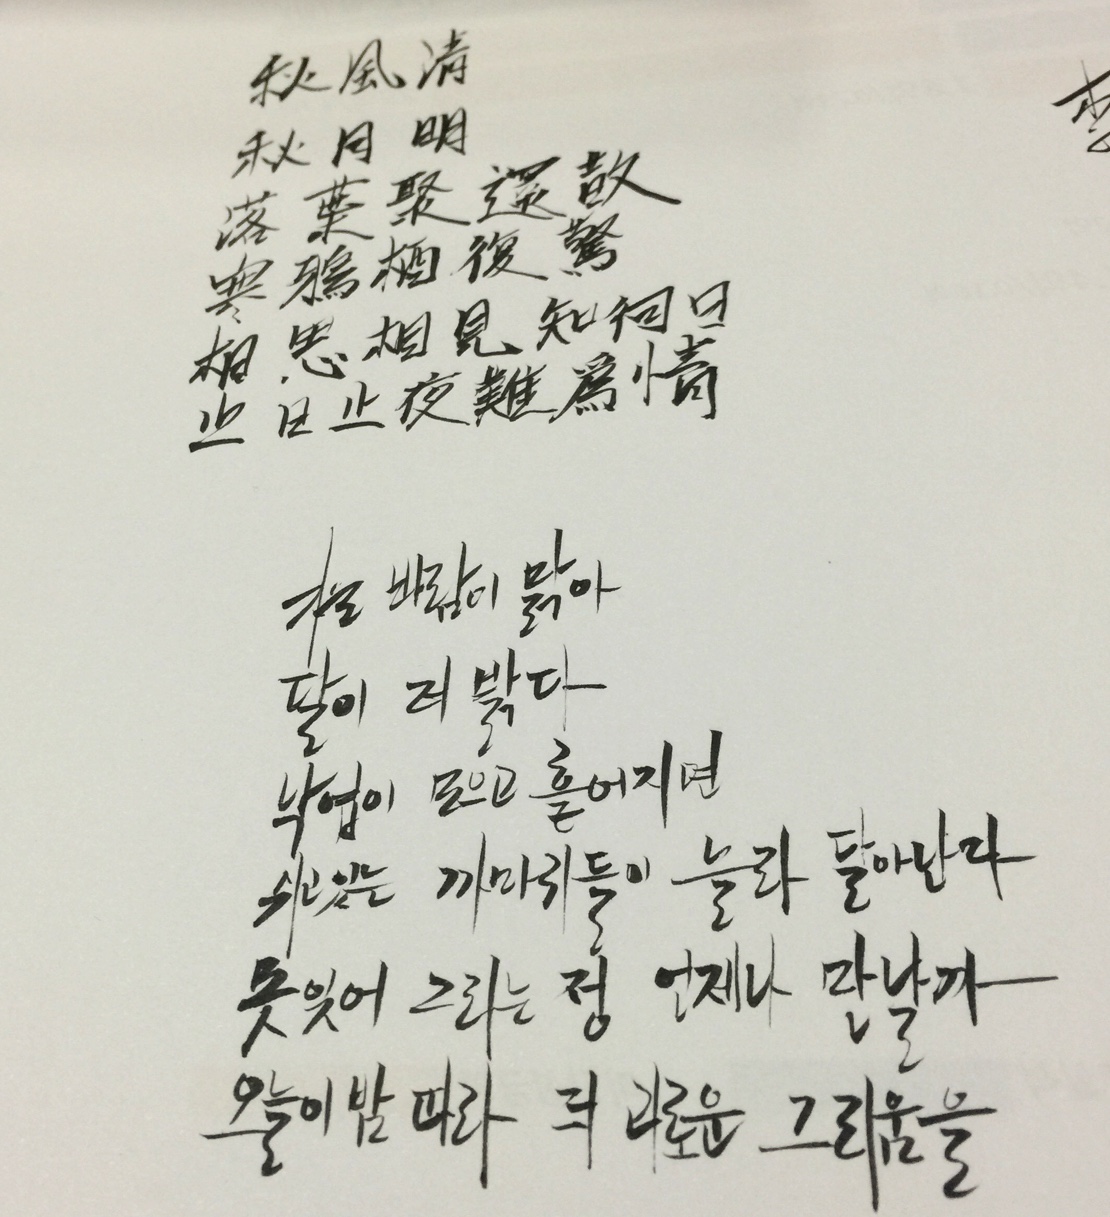 秋風清
秋月明
落葉聚還散
寒鴉栖復驚
相思相見知何日
此日此夜難爲情
가을 바람이 맑아
달이 더 밝다
낙엽이 모으고 흩어지면
쉬고있는 까마귀들이 놀라 달아난다
못잊어 그리는 정 언제나 만날까
오늘이밤 따라 더 괴로운 그리움을